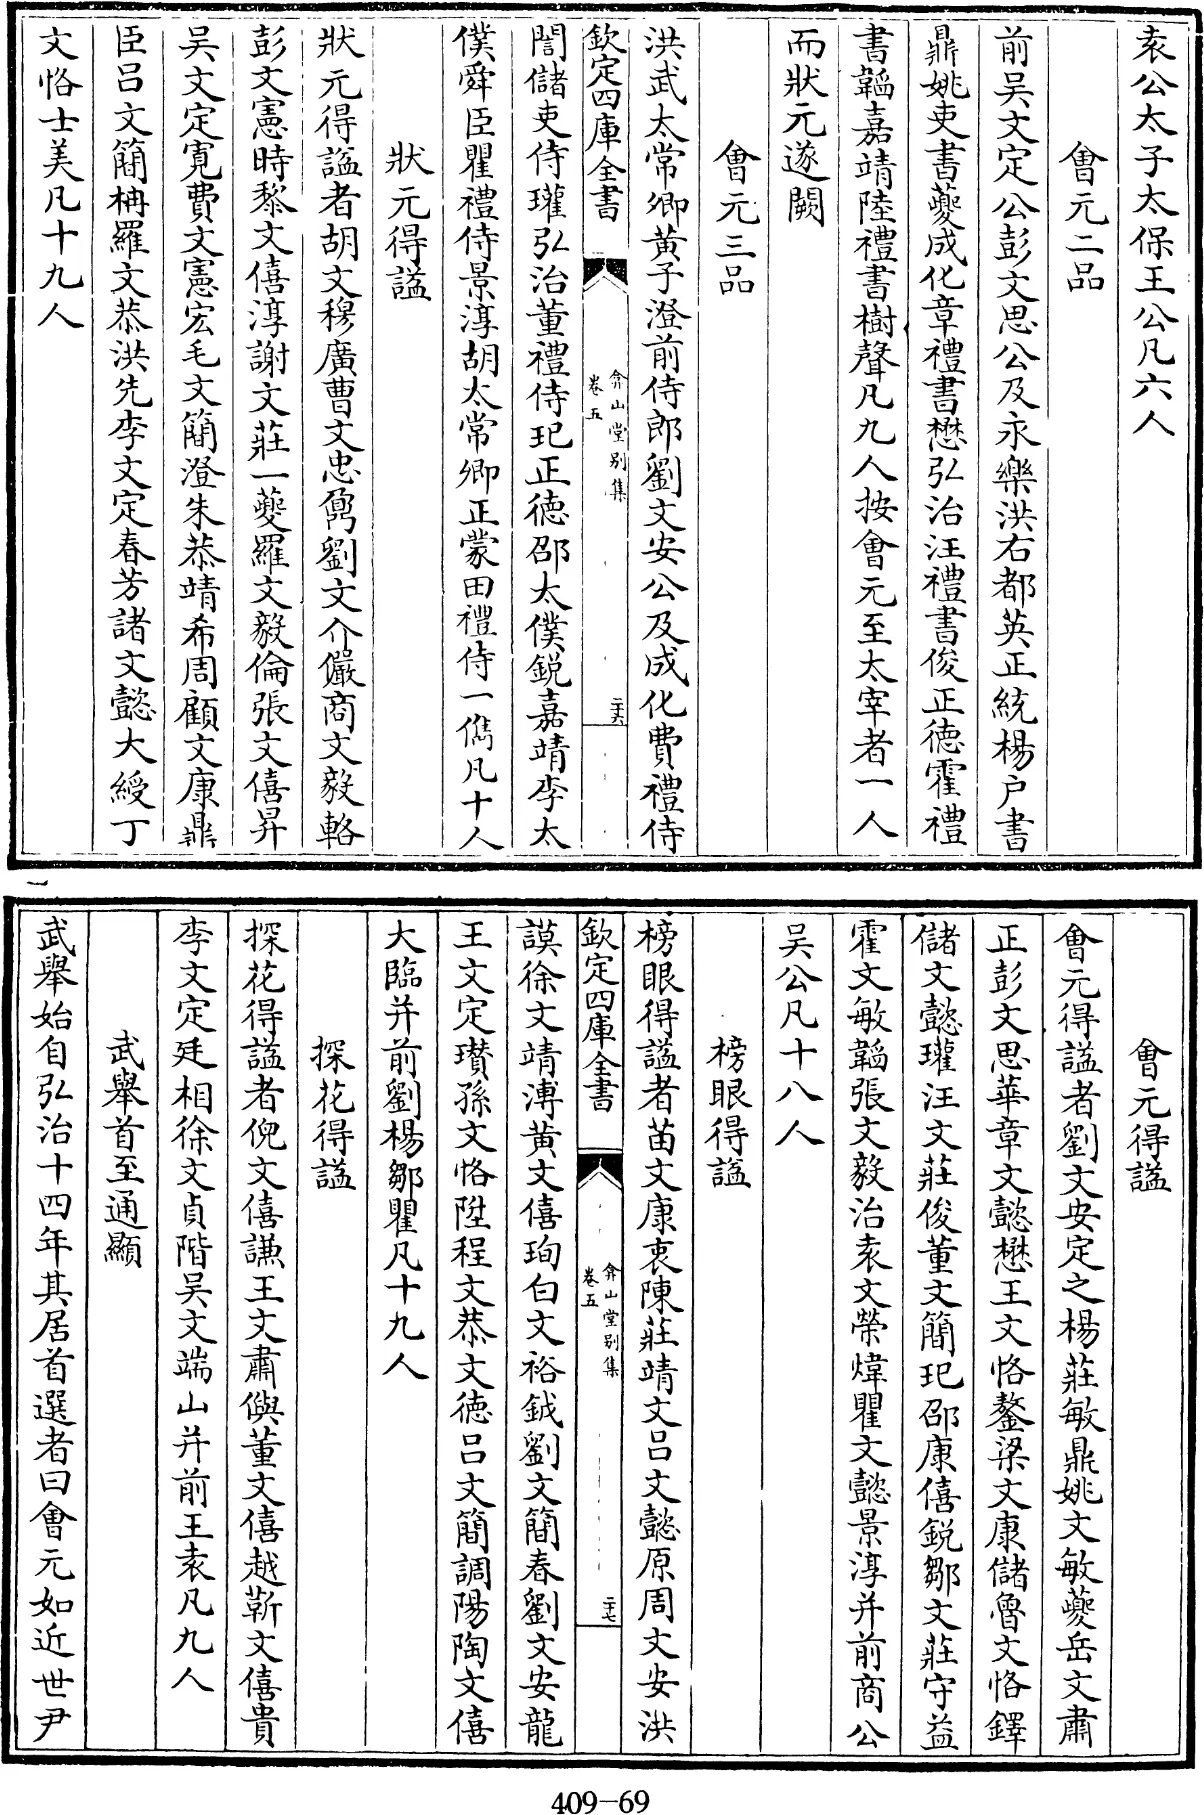 袁公太子太保王公凡六人
會元二品
前吴文定公彭文思公及永樂洪右都英正統楊户書
鼎姚吏書夔成化章禮書懋弘治汪禮書俊正徳霍禮
書韜嘉靖陸禮書樹聲凡九人按會元至太宰者一人
而狀元遂闕
會元三品
洪武太常卿黄子澄前侍郎劉文安公及成化費禮侍
欽定四庫全書
弇山堂别集
卷五
二十六
誾儲吏侍瓘弘治董禮侍玘正徳邵太僕鋭嘉靖李太
僕舜臣瞿禮侍景淳胡太常卿正蒙田禮侍一儁凡十人
狀元得謚
狀元得謚者胡文穆廣曹文忠鼐劉文介儼商文毅輅
彭文憲時黎文僖淳謝文莊一夔羅文毅倫張文僖昇
吴文定寛費文憲宏毛文簡澄朱恭靖希周顧文康鼎
臣吕文簡柟羅文恭洪先李文定春芳諸文懿大綬丁
文恪士美凡十九人
會元得謚
會元得謚者劉文安定之楊莊敏鼎姚文敏夔岳文肅
正彭文思華章文懿懋王文恪鏊梁文康儲魯文恪鐸
儲文懿瓘汪文莊俊董文簡玘邵康僖鋭鄒文莊守益
霍文敏韜張文毅治袁文榮煒瞿文懿景淳并前商公
吴公凡十八人
榜眼得謚
榜眼得謚者苗文康衷陳莊靖文吕文懿原周文安洪
欽定四庫全書
弇山堂别集
卷五
二十七
謨徐文靖溥黄文僖珣白文裕鉞劉文簡春劉文安龍
王文定瓚孫文恪陞程文恭文徳吕文簡調陽陶文僖
大臨并前劉楊鄒瞿凡十九人
探花得謚
探花得謚者倪文僖謙王文肅㒜董文僖越靳文僖貴
李文定廷相徐文貞階吴文端山并前王袁凡九人
武舉首至通顯
武舉始自弘治十四年其居首選者曰會元如近世尹
409-69